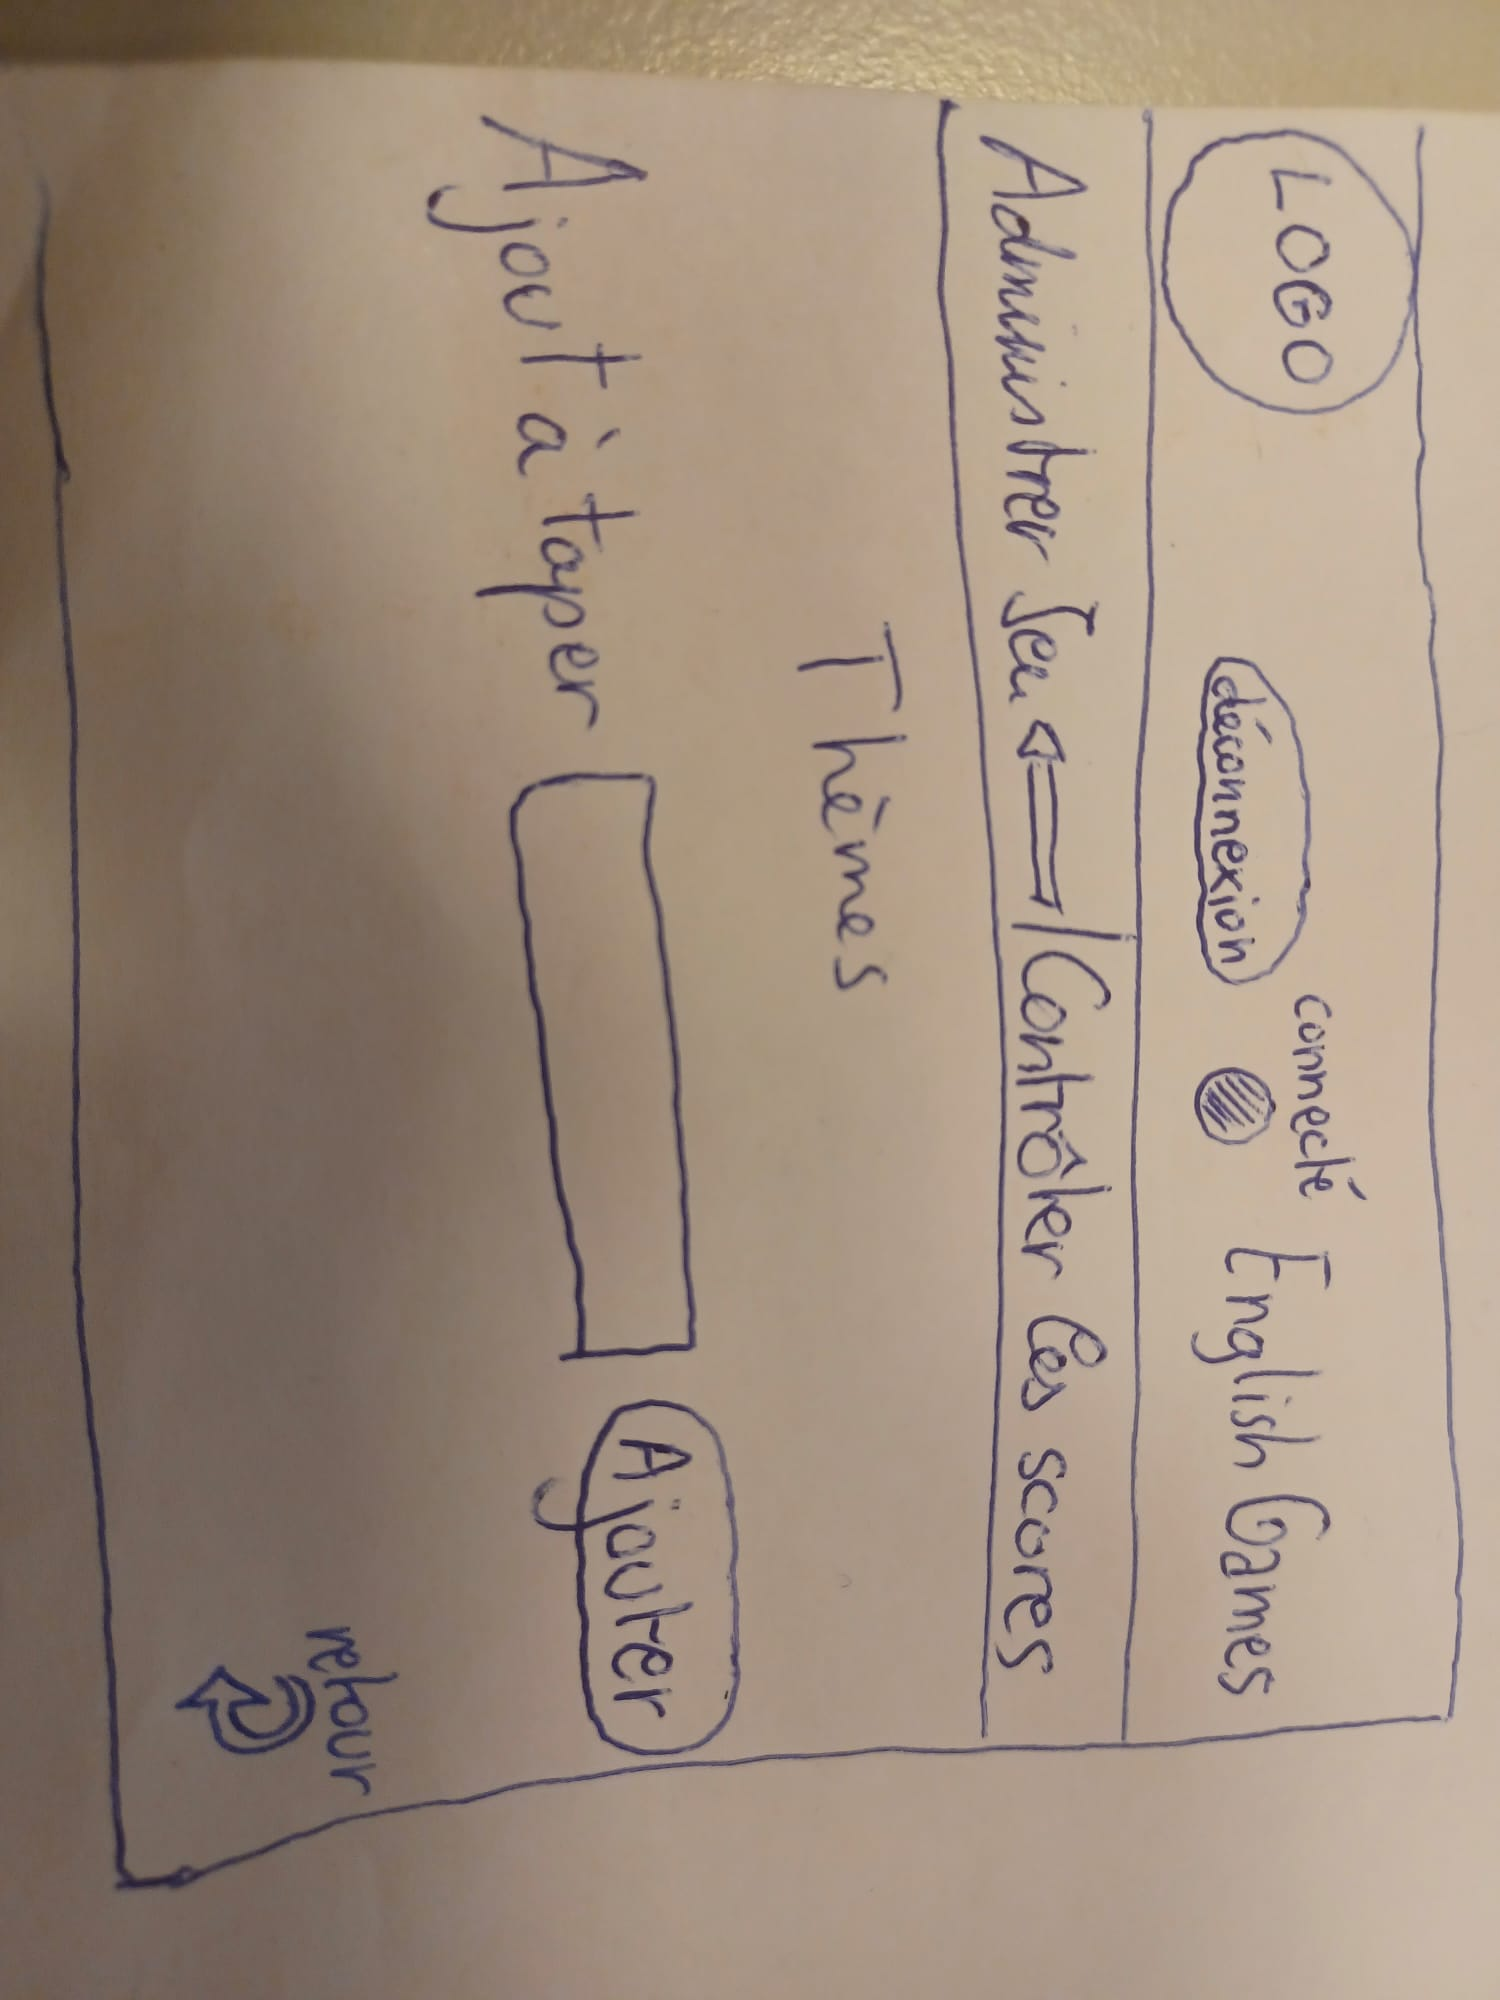 LOGO
connecté
déconnexion
English Games
Administrer Jeu
Contrôler les scores
Thèmes
Ajout à taper
Ajouter
retour